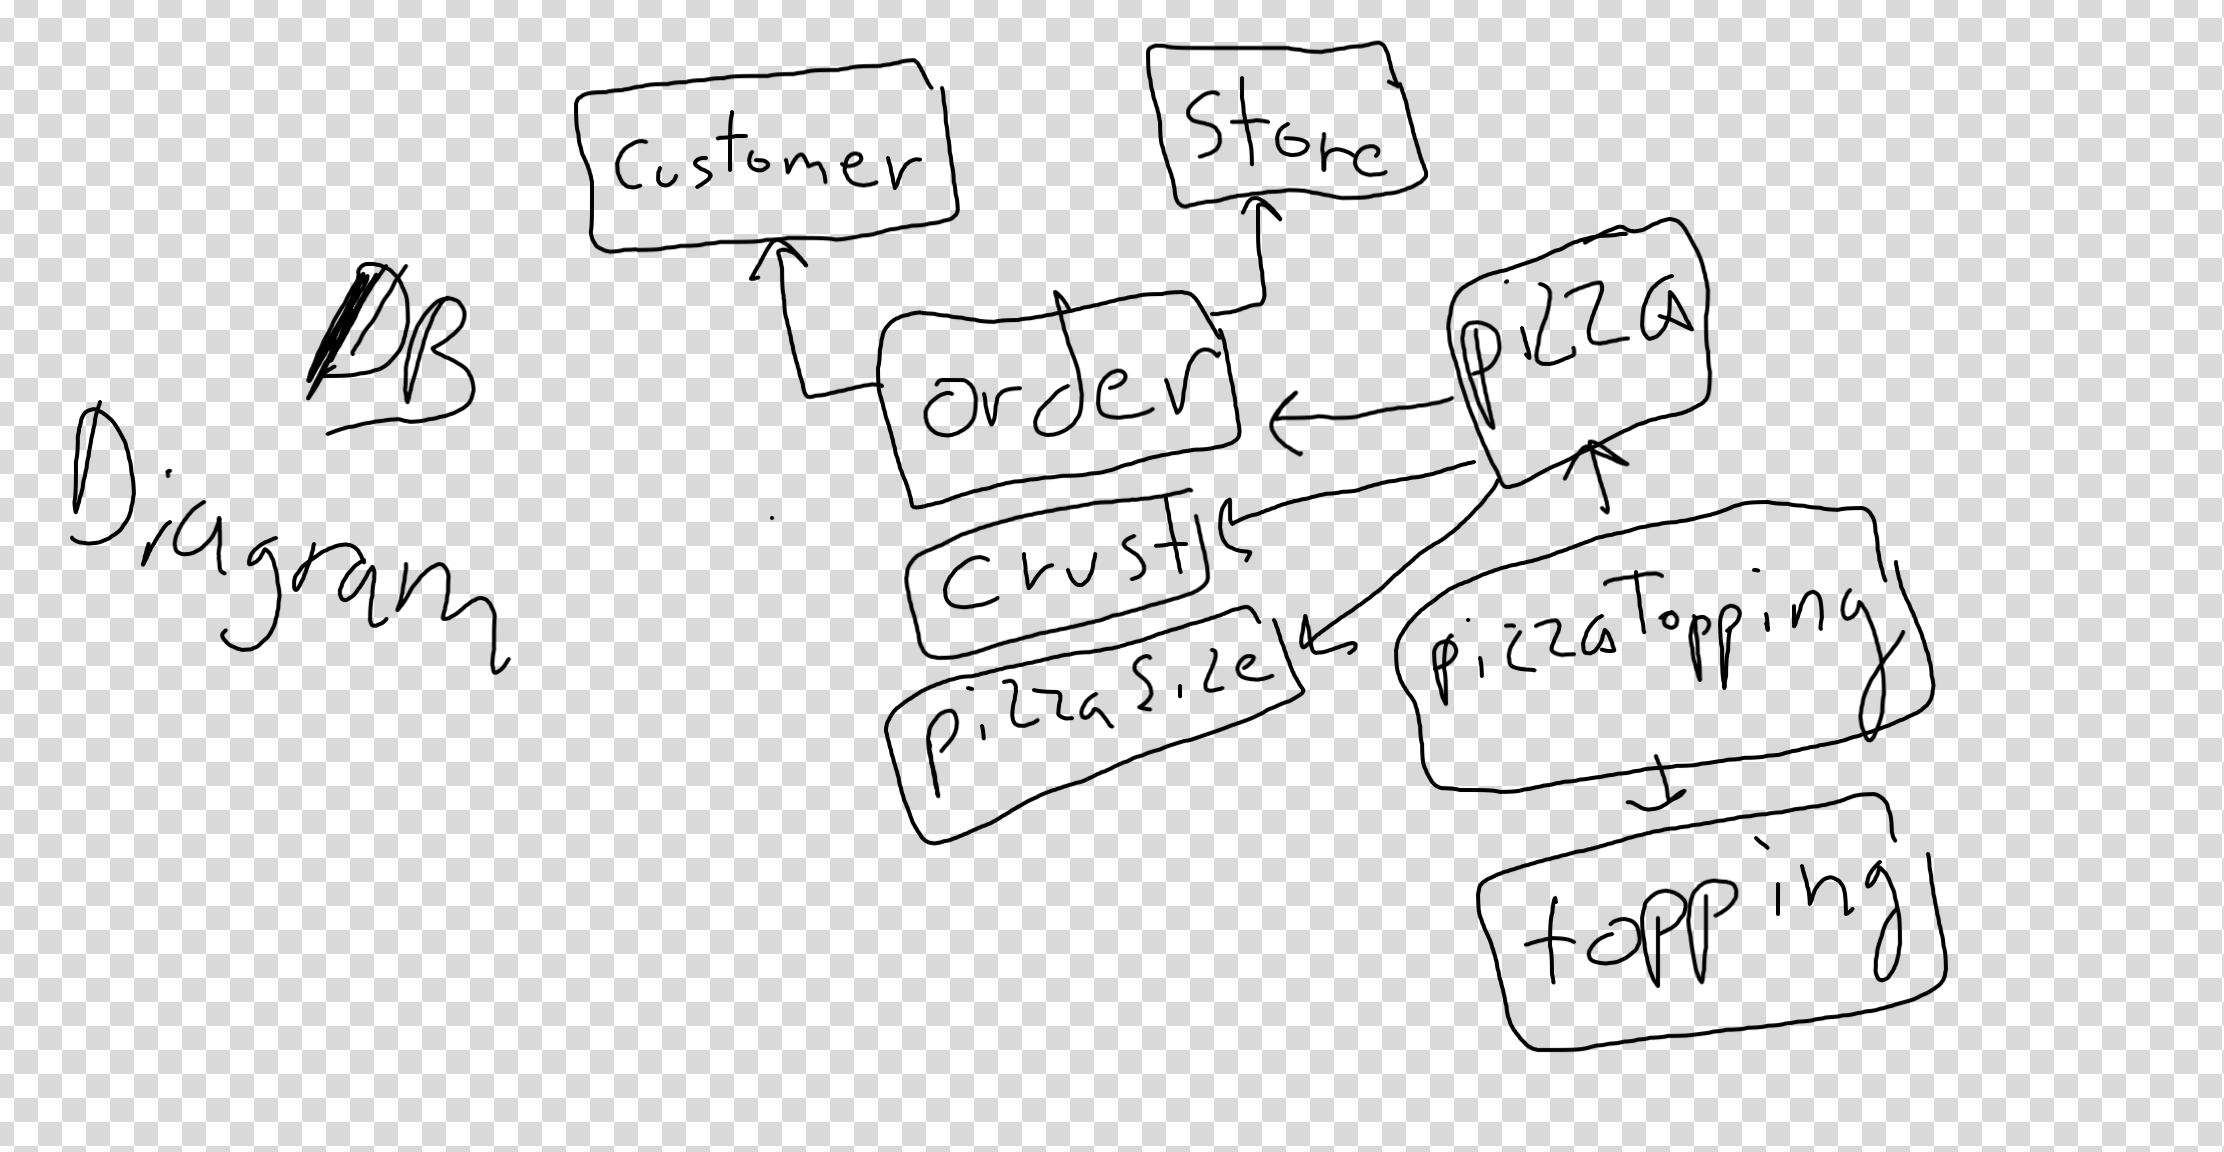 DB
Diagram
Customer
Store
order
pizza
crust
pizza size
pizza Topping
topping